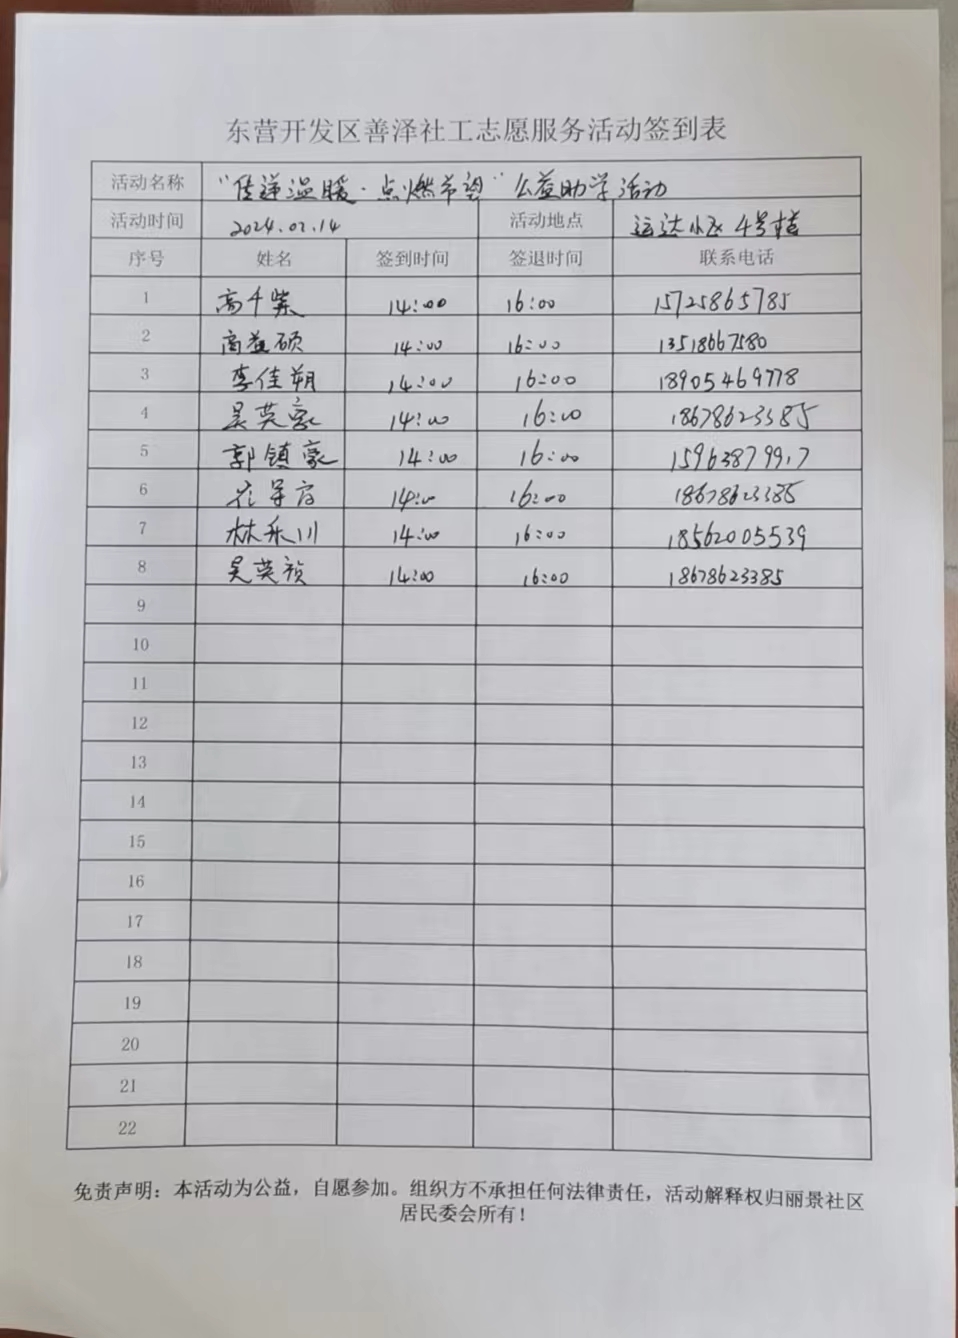 东营开发区善泽社工志愿服务活动签到表
活动名称 “传递温暖·点燃希望”公益助学活动
活动时间 2024.02.14 活动地点 运达小区4号楼
序号 姓名 签到时间 签退时间 联系电话
1 高千紫 14:00 16:00 15725865785
2 高益硕 14:00 16:00 13518667580
3 李佳朔 14:00 16:00 18905469778
4 吴英豪 14:00 16:00 18678623385
5 郭镇豪 14:00 16:00 15963879917
6 14:00 16:00 18678623385
7 林禾川 14:00 16:00 18562005539
8 吴英祯 14:00 16:00 18678623385
9
10
11
12
13
14
15
16
17
18
19
20
21
22
免责声明：本活动为公益，自愿参加。组织方不承担任何法律责任，活动解释权归丽景社区
居民委会所有！